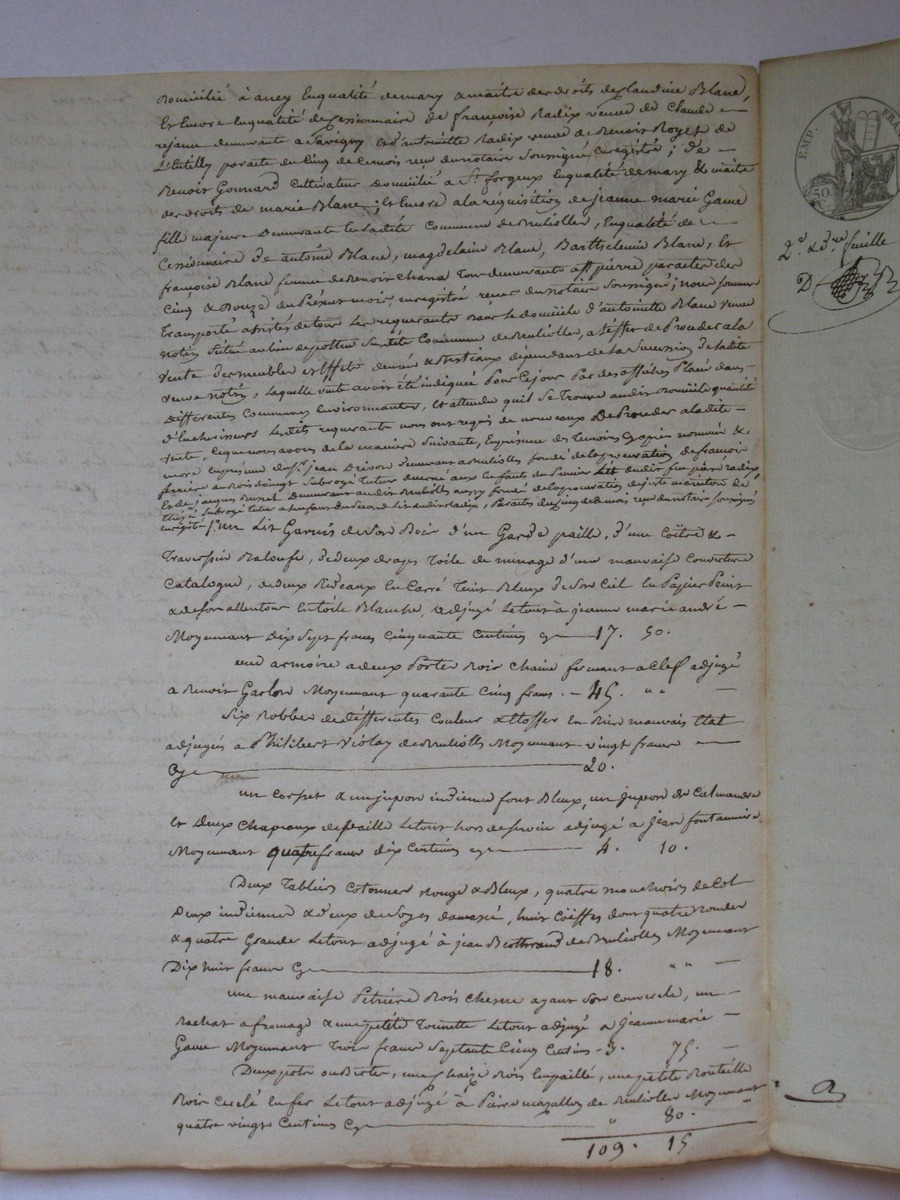 Domicilié à ancy Enqualité demary & maitre des droits de Claudine Blanc,
Et Encore Enqualité de Cessionnaire de françoise Radix veuve de Claude
rejane demeurante a Savigny et d'antoinette Radix veuve de Benoit Royet de
L'entilly par acte du Cinq de Cemois recu du notaire Soussigné Enregistré ; De
Benoit Gonnard Cultivateur Domicilié a St forgeux Enqualité demary & maitre
des droits de marie Blanc ; Et Encore ala requisition de jeanne marie Game
fille majeure Demeurante en Ladite Commune de Brulioller, Enqualité de
Cessionaire De antoine Blanc, magdelaine Blanc, Barthelemie Blanc, Et
françoise Blanc femme de Benoit Chana Tous demeurants a St pierre par actes des
Cinq & Douze du Présent mois, enregistrés recus du Notaire Soussigné ; nous sommes
transporté assistés de tous Les requerants dans le domicile d'antoinette Blanc veuve
notin situé au lieu de pottin Susdite Commune de Brulioller, a l'effet de Proceder a la
vente des meubles et Effets denrées & Bestiaux dependant de La Succession de ladite
veuve notin, laquelle vente avoit été indiquée Pour Cejour Par des affiches Placé dans
differentes Communes Environnantes, Et attendu quil Se Trouve audit Domicile quantité
d'Encherisseurs Lesdits requerants nous ont requis de nouveaux De Proceder a ladite
vente, Ceque nous avons de la maniere Suivante, En présence des temoins Cy après nommés &
encore en présence du Sr jean Drivon demeurant a Brulliolles fondé de la procuration de françois
ferriere au Bois doingt Subrogé Tuteur decerné aux Enfants du Premier Lit dudit feu pierre radix,
Et de jacques Brunet Demeurant audit Brulliolles aussy fondé de la procuration
Subrogé tuteur a Enfants du Second Lit dudit Radix, Par actes du Cinq de Ce mois reçu du notaire Soussigné
Enregistré 1° un Lit Garnis de Son Bois d'un Garde paille, d'une Coitre &
Traversin Balouffe, de deux draps Toile de menage d'une mauvaise Couverture
Catalogne, de deux Rideaux En Carré Teint Bleux De Son Ciel En Papier Peint
& de son allentour En toile Blanche, adjugé Letout à jeanne marie andré
Moyennant Dix Sept francs Cinquante Centimes Cy 17. 50.
une armoire a deux Portes Bois Chaine fermant a Clef adjugé
a Benoit Garlon Moyennant quarante Cinq francs. 45. " "
Six Robbes de differentes Couleur & Etoffes En Bien mauvais Etat
adjugés a Philibert Violay de Brulliolles Moyennant vingt francs
Cy 20.
un Corset & un jupon indienne font Bleux, un jupon de Calmande
Et Deux Chapeaux de paille Letout hors de service adjugé a Jean fontanniere
Moyennant quatre francs dix Centimes Cy 4. 10.
Deux Tabliers Cotonnes Rouge & Bleux, quatre mouchoirs de Col
Deux indienne & deux de Soyes damassé, huit Coiffes dont quatre rondes
& quatre Grande Letout adjugé à jean Berthrand de Brulliolles Moyennant
Dix huit francs Cy 18. " "
une mauvaise Petriere Bois Chesne ayant Son Couvercle, un
Rachat a fromage & une petite Tounette Letout adjugé a Jeanne marie
Game Moyennant Trois francs Septante Cinq Centimes 3. 75.
Deux pots ou Bertes, une Chaize Bois Empaillé, une petite Bouteille
Bois Cerclé En fer Letout adjugé à Pierre mazalles de Brulioller Moyennant
quatre vingt Centimes Cy " 80.
109. 15
EMP. FRAN
50
2e. & dre. feuille